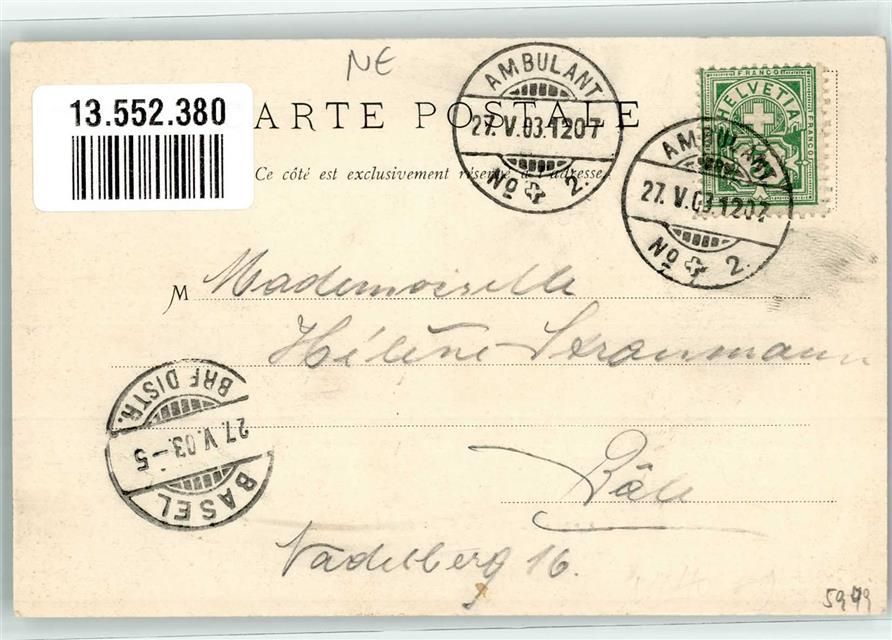 NE
13.552.380
CARTE POSTALE
Ce côté est exclusivement réservé à l'adresse.
AMBULANT
27.V.03.1207
No 2.
FRANCO
HELVETIA
FRANCO
AMBULANT
27.V.03.1207
No 2.
M Mademoiselle
Hélène Straumann
BRF DISTR.
27.V.03.-5
BASEL
Bâle
Nadelberg 16.